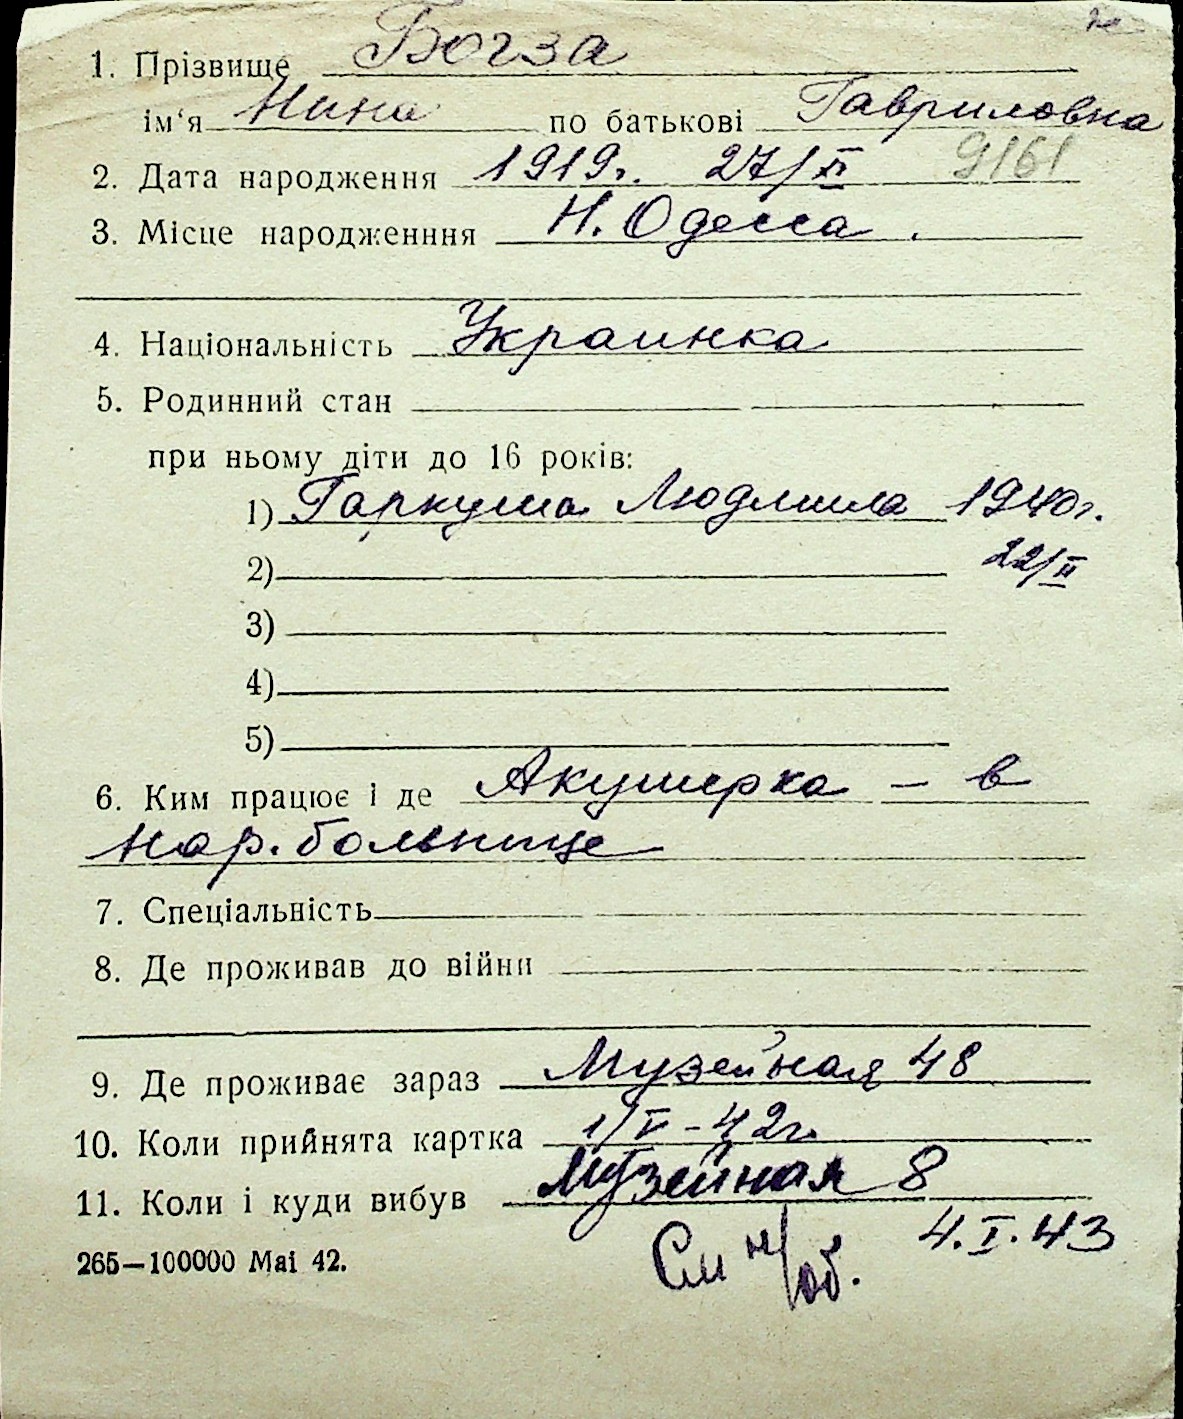 1. Прізвище Богза
ім'я Нина по батькові Гавриловна
9161
2. Дата народження 1919г. 27/XI
3. Місце народженння Н. Одесса.
4. Національність Украинка
5. Родинний стан
при ньому діти до 16 років:
1) Гаркуша Людмила 1940г.
2) 22/II
3)
4)
5)
6. Ким працює і де Акушерка – в
нар. больнице
7. Спеціальність
8. Де проживав до війни
9. Де проживає зараз Музейная 48
10. Коли прийнята картка 1/V-42г.
11. Коли і куди вибув Музейная 8
4.I.43
265—100000 Mai 42. См н/об.